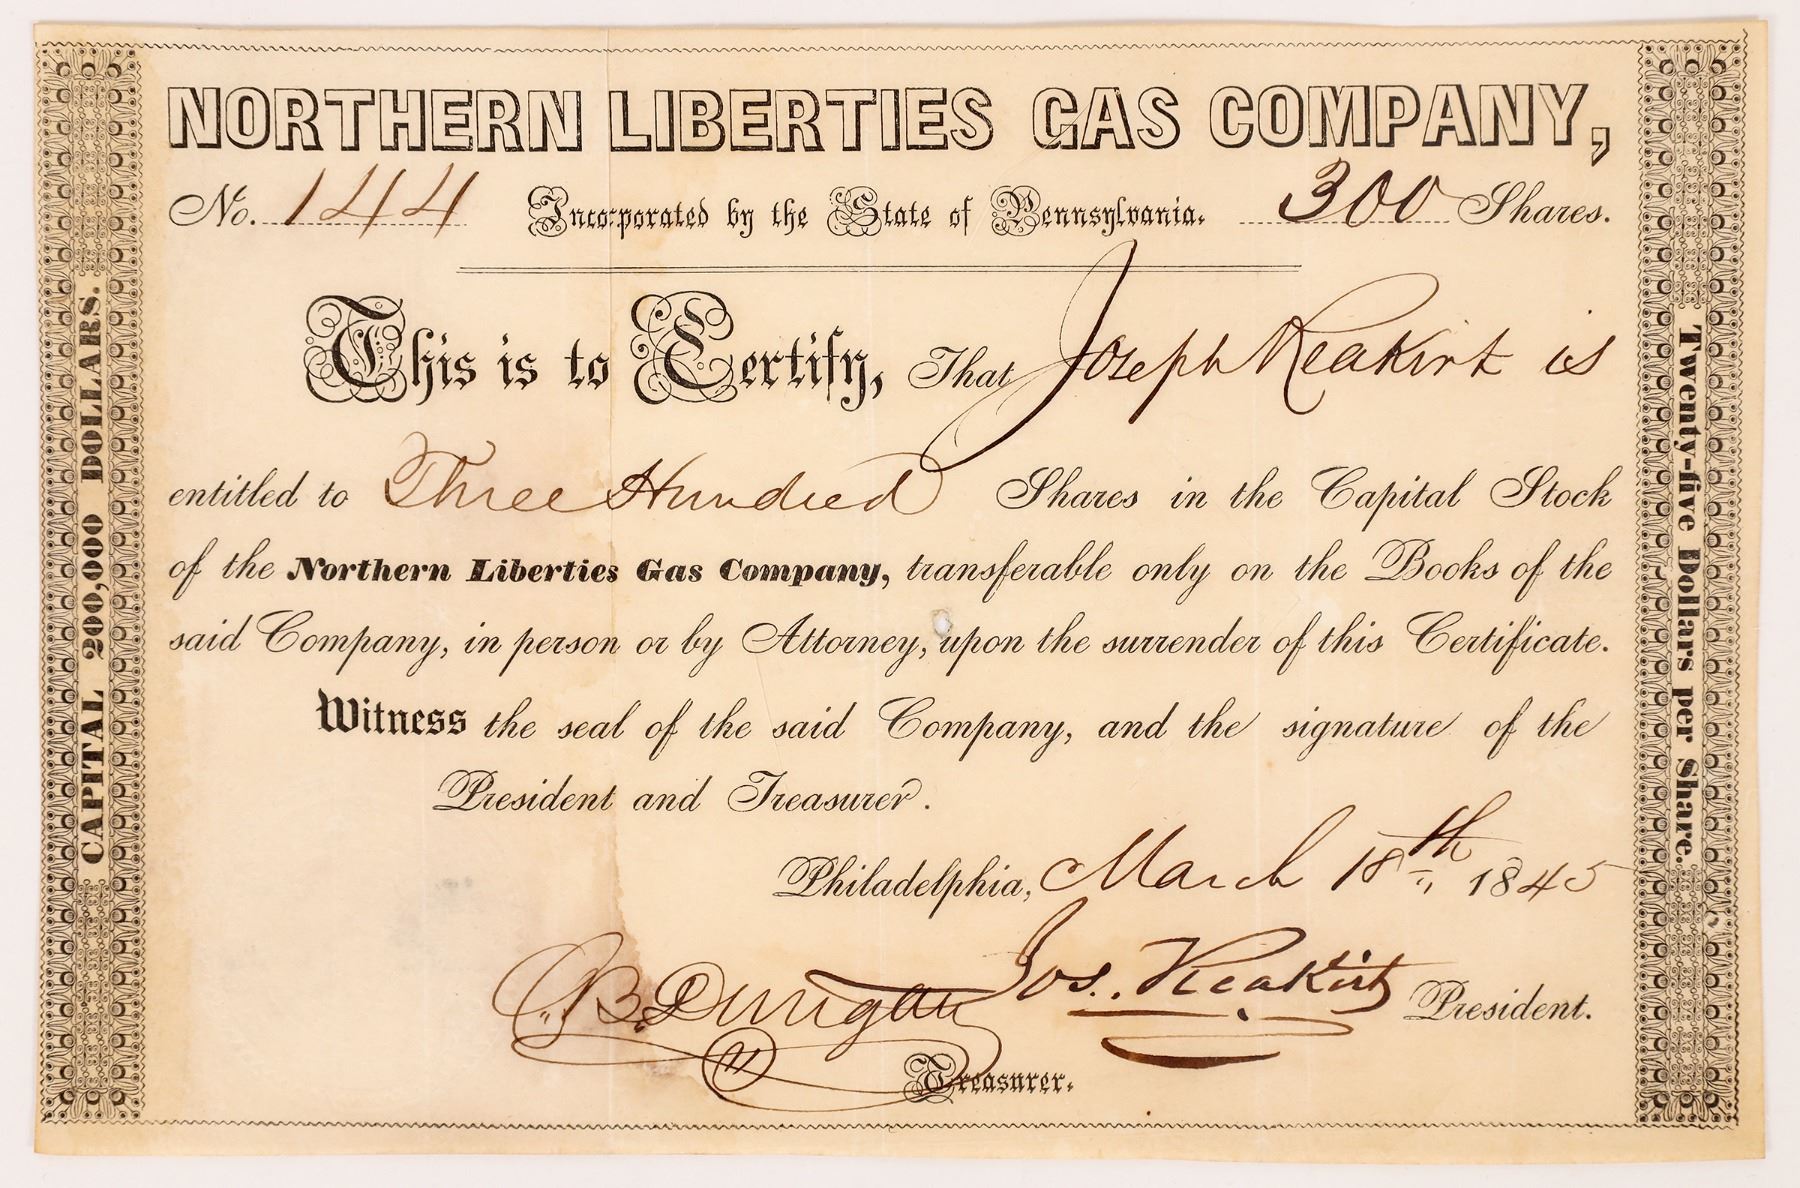 NORTHERN LIBERTIES GAS COMPANY,
No. 144 Incorporated by the State of Pennsylvania. 300 Shares.
This is to Certify, That Joseph Reakirt is
entitled to Three Hundred Shares in the Capital Stock
of the Northern Liberties Gas Company, transferable only on the Books of the
said Company, in person or by Attorney, upon the surrender of this Certificate.
Witness the seal of the said Company, and the signature of the
President and Treasurer.
Philadelphia, March 18th 1845
Jos. Reakirt President.
B. Dungan
Treasurer.
CAPITAL 200,000 DOLLARS.
Twenty-five Dollars per Share.